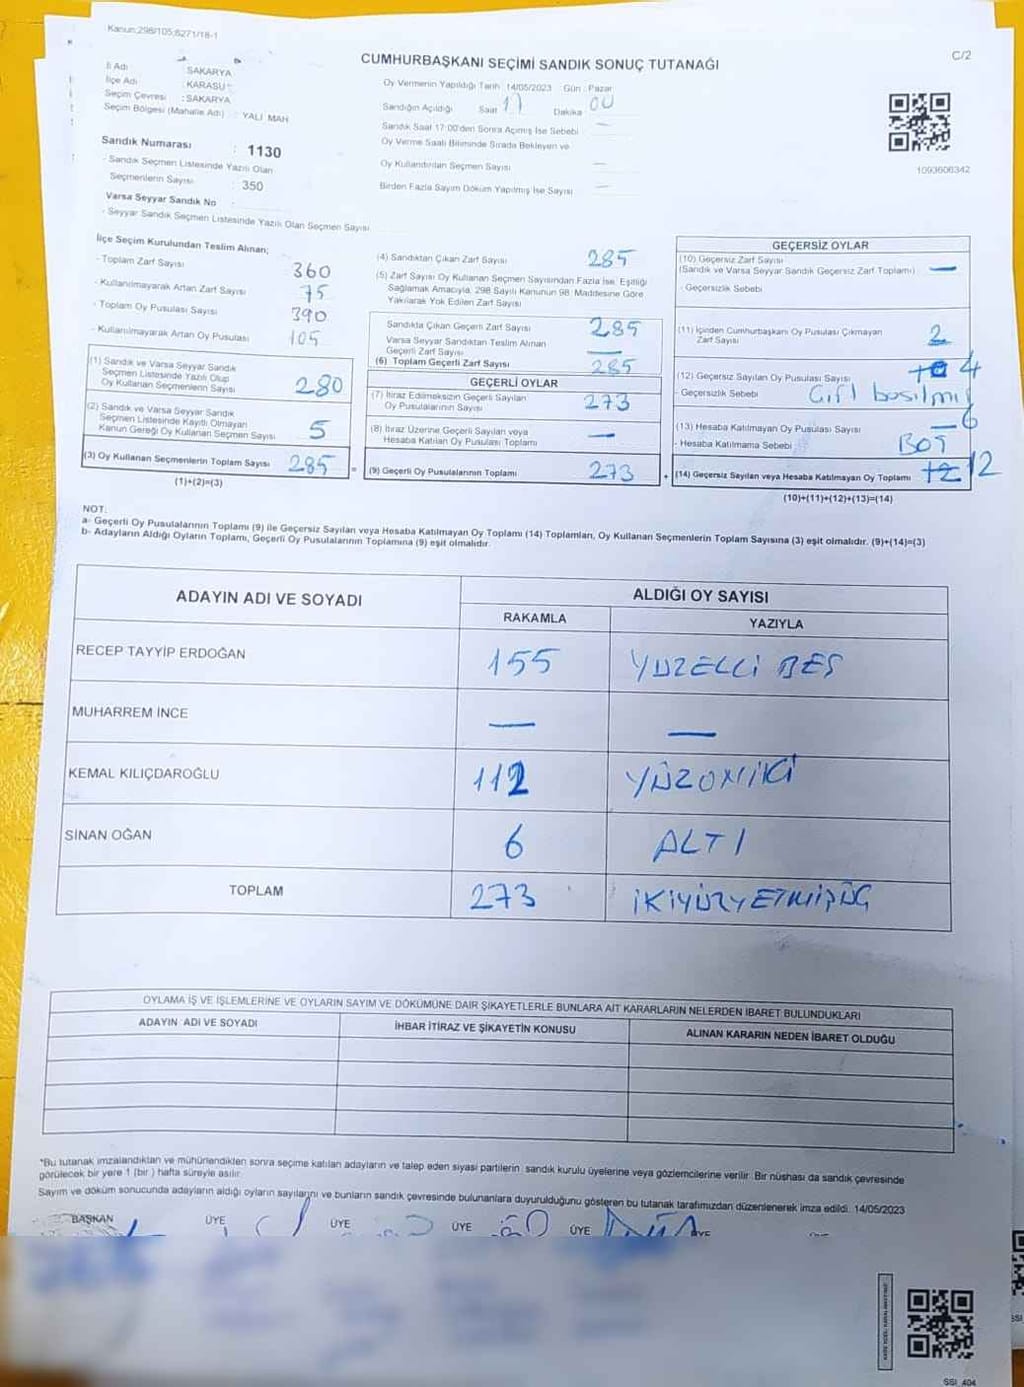 Kanun:298/105;6271/18-1
C/2
CUMHURBAŞKANI SEÇİMİ SANDIK SONUÇ TUTANAĞI
İl Adı : SAKARYA
İlçe Adı : KARASU
Seçim Çevresi : SAKARYA
Seçim Bölgesi (Mahalle Adı) : YALI MAH
Oy Vermenin Yapıldığı Tarih 14/05/2023 Gün : Pazar
Sandığın Açıldığı Saat 17 Dakika 00
Sandık Saat 17:00'den Sonra Açılmış İse Sebebi —
Oy Verme Saati Bitiminde Sırada Bekleyen ve
Oy Kullandırılan Seçmen Sayısı —
Birden Fazla Sayım Döküm Yapılmış İse Sayısı —
1093606342
Sandık Numarası : 1130
- Sandık Seçmen Listesinde Yazılı Olan
Seçmenlerin Sayısı : 350
Varsa Seyyar Sandık No :
- Seyyar Sandık Seçmen Listesinde Yazılı Olan Seçmen Sayısı
İlçe Seçim Kurulundan Teslim Alınan;
- Toplam Zarf Sayısı 360
- Kullanılmayarak Artan Zarf Sayısı 75
- Toplam Oy Pusulası Sayısı 390
- Kullanılmayarak Artan Oy Pusulası 105
(1) Sandık ve Varsa Seyyar Sandık
Seçmen Listesinde Yazılı Olup
Oy Kullanan Seçmenlerin Sayısı 280
(2) Sandık ve Varsa Seyyar Sandık
Seçmen Listesinde Kayıtlı Olmayan
Kanun Gereği Oy Kullanan Seçmen Sayısı 5
(3) Oy Kullanan Seçmenlerin Toplam Sayısı 285 =
(1)+(2)=(3)
(4) Sandıktan Çıkan Zarf Sayısı 285
(5) Zarf Sayısı Oy Kullanan Seçmen Sayısından Fazla İse, Eşitliği
Sağlamak Amacıyla, 298 Sayılı Kanunun 98. Maddesine Göre
Yakılarak Yok Edilen Zarf Sayısı
Sandıkta Çıkan Geçerli Zarf Sayısı 285
Varsa Seyyar Sandıktan Teslim Alınan
Geçerli Zarf Sayısı —
(6) Toplam Geçerli Zarf Sayısı 285
GEÇERLİ OYLAR
(7) İtiraz Edilmeksizin Geçerli Sayılan
Oy Pusulalarının Sayısı 273
(8) İtiraz Üzerine Geçerli Sayılan veya
Hesaba Katılan Oy Pusulası Toplamı —
(9) Geçerli Oy Pusulalarının Toplamı 273 +
GEÇERSİZ OYLAR
(10) Geçersiz Zarf Sayısı
(Sandık ve Varsa Seyyar Sandık Geçersiz Zarf Toplamı) —
- Geçersizlik Sebebi
(11) İçinden Cumhurbaşkanı Oy Pusulası Çıkmayan
Zarf Sayısı 2
(12) Geçersiz Sayılan Oy Pusulası Sayısı 4
- Geçersizlik Sebebi Çift basılmış
(13) Hesaba Katılmayan Oy Pusulası Sayısı — 6
- Hesaba Katılmama Sebebi BOŞ
(14) Geçersiz Sayılan veya Hesaba Katılmayan Oy Toplamı 12 12
(10)+(11)+(12)+(13)=(14)
NOT:
a- Geçerli Oy Pusulalarının Toplamı (9) ile Geçersiz Sayılan veya Hesaba Katılmayan Oy Toplamı (14) Toplamları, Oy Kullanan Seçmenlerin Toplam Sayısına (3) eşit olmalıdır. (9)+(14)=(3)
b- Adayların Aldığı Oyların Toplamı, Geçerli Oy Pusulalarının Toplamına (9) eşit olmalıdır.
ADAYIN ADI VE SOYADI
ALDIĞI OY SAYISI
RAKAMLA YAZIYLA
RECEP TAYYİP ERDOĞAN 155 YÜZELLİ BEŞ
MUHARREM İNCE — —
KEMAL KILIÇDAROĞLU 112 YÜZONİKİ
SİNAN OĞAN 6 ALTI
TOPLAM 273 İKİYÜZYETMİŞÜÇ
OYLAMA İŞ VE İŞLEMLERİNE VE OYLARIN SAYIM VE DÖKÜMÜNE DAİR ŞİKAYETLERLE BUNLARA AİT KARARLARIN NELERDEN İBARET BULUNDUKLARI
ADAYIN ADI VE SOYADI İHBAR İTİRAZ VE ŞİKAYETİN KONUSU ALINAN KARARIN NEDEN İBARET OLDUĞU
*Bu tutanak imzalandıktan ve mühürlendikten sonra seçime katılan adayların ve talep eden siyasi partilerin sandık kurulu üyelerine veya gözlemcilerine verilir. Bir nüshası da sandık çevresinde
görülecek bir yere 1 (bir ) hafta süreyle asılır.
Sayım ve döküm sonucunda adayların aldığı oyların sayılarını ve bunların sandık çevresinde bulunanlara duyurulduğunu gösteren bu tutanak tarafımızdan düzenlenerek imza edildi. 14/05/2023
BAŞKAN ÜYE ÜYE ÜYE ÜYE ÜYE
SSI_404